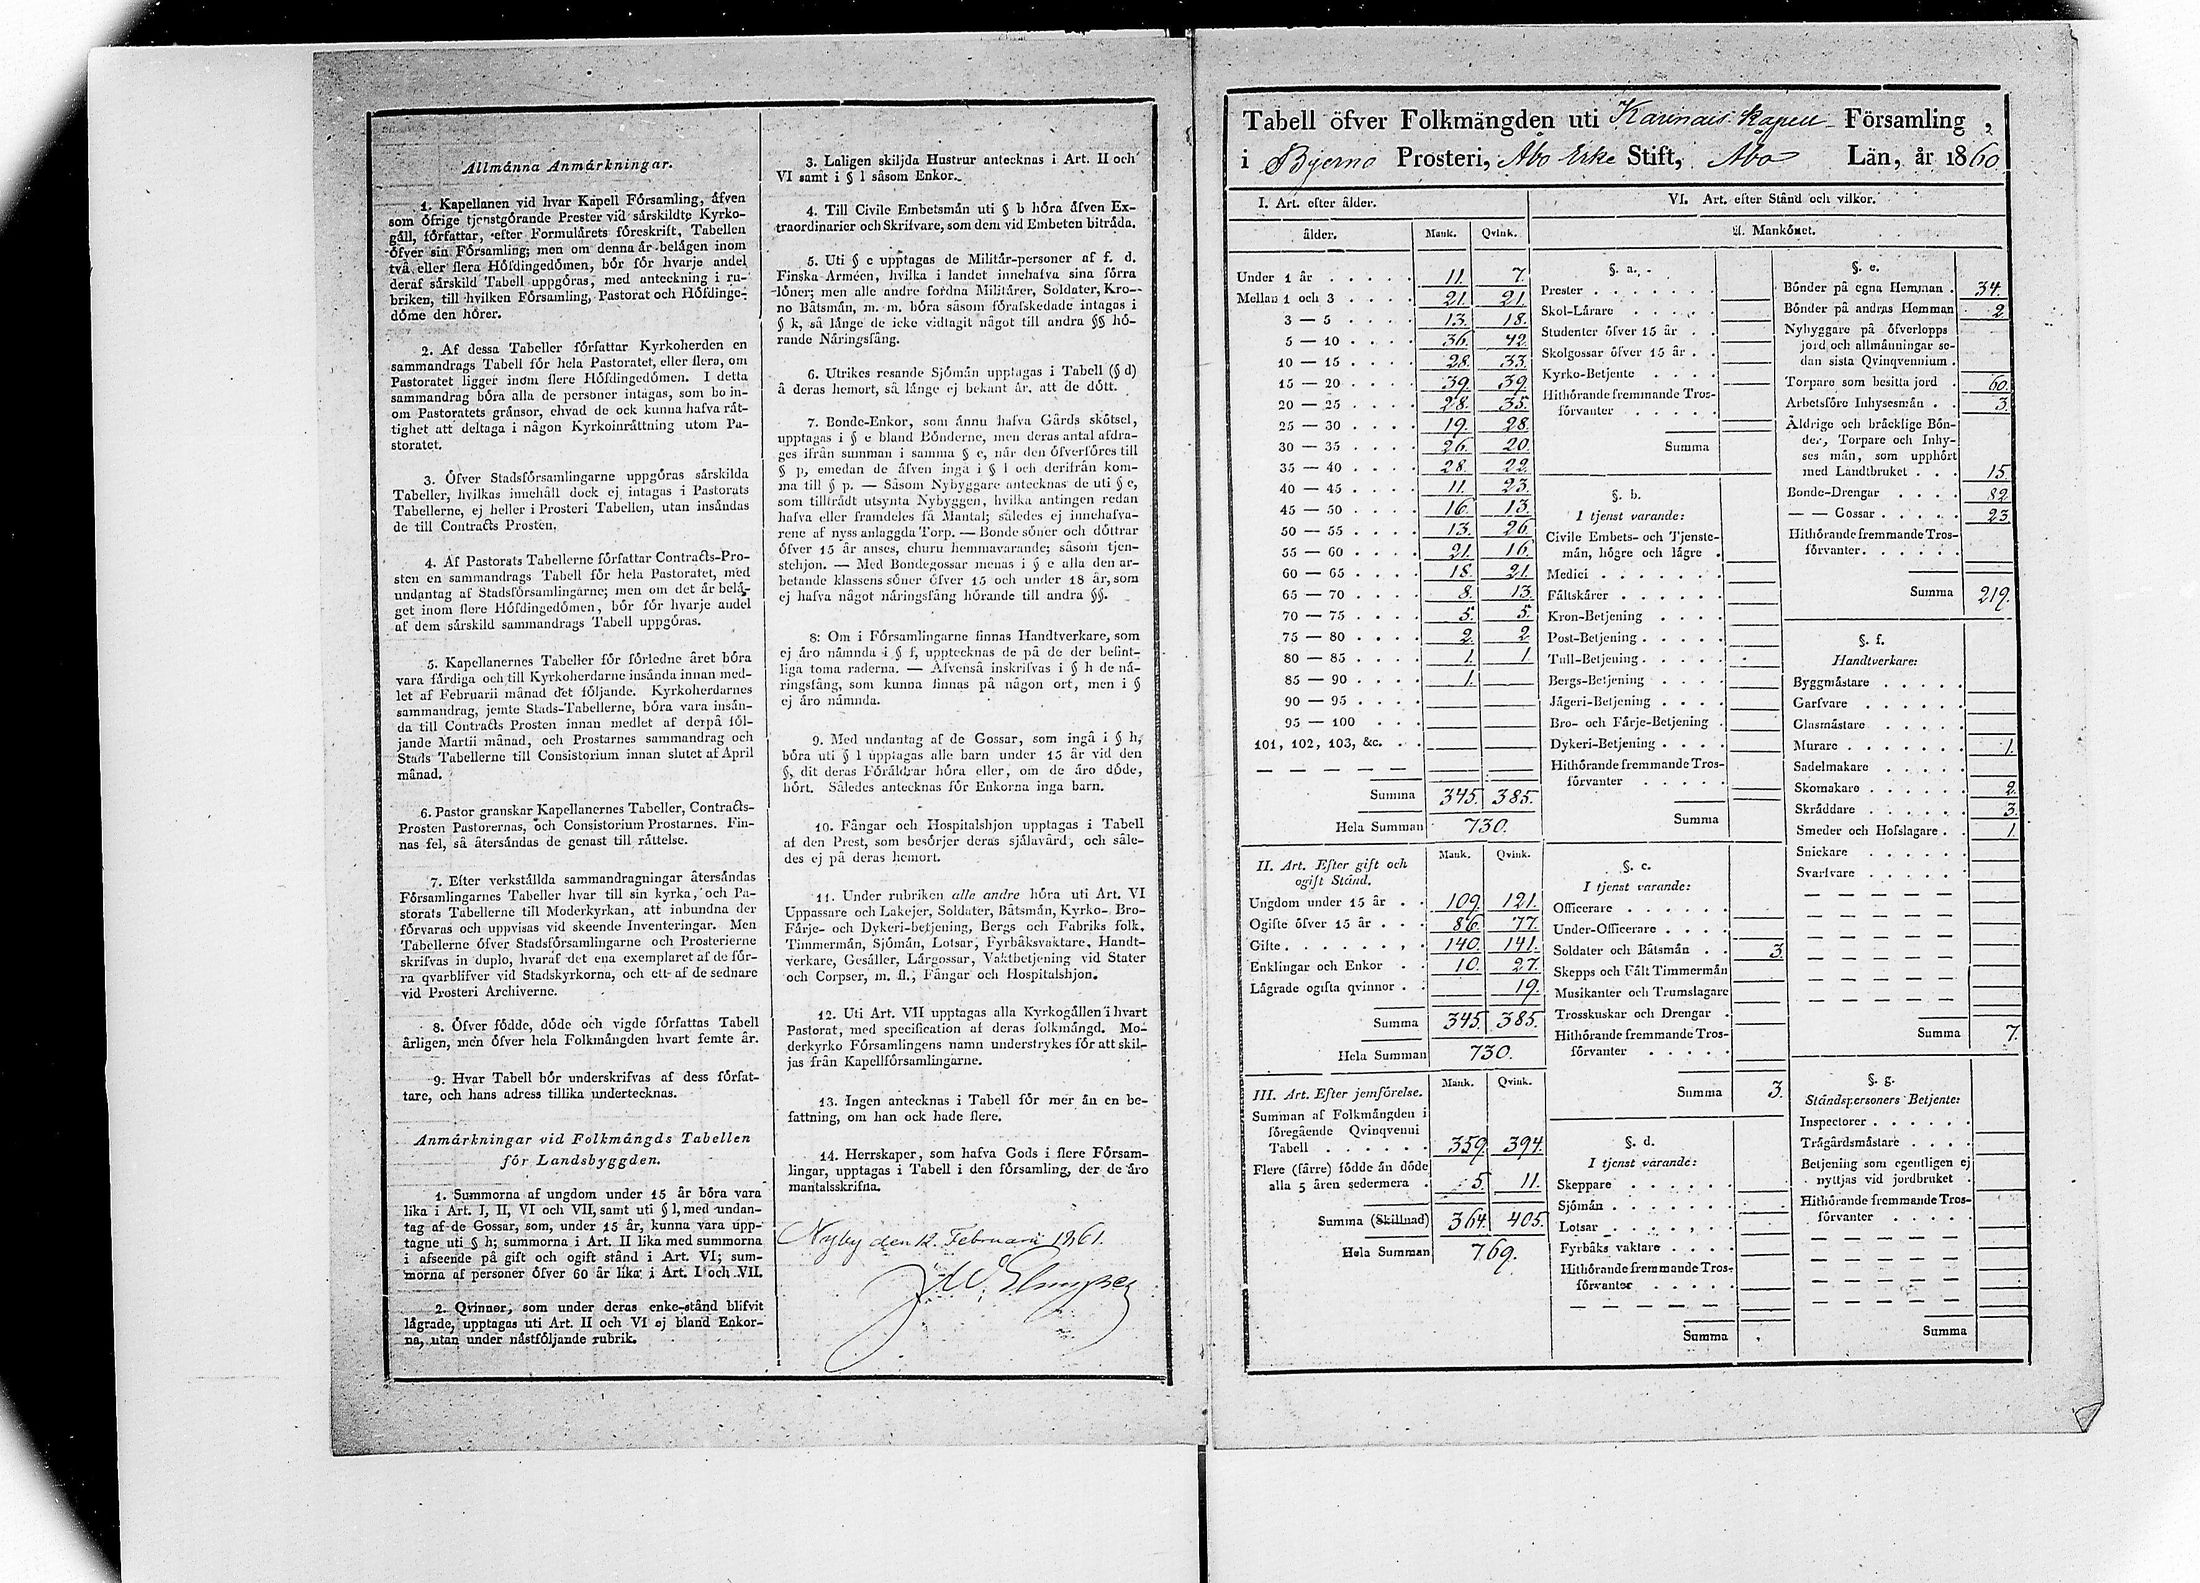 Allmänna Anmärkningar.
1. Kapellanen vid hvar Kapell Församling, äfven
som öfrige tjenstgörande Prester vid särskildte Kyrko-
gäll, författar, efter Formulårets föreskrift, Tabellen
öfver sin Församling; men om denna är belägen inom
två eller flera Höfdingedömen, bör för hvarje andel
deraf särskild Tabell uppgöras, med anteckning i ru-
briken, till hvilken Församling, Pastorat och Höfdinge-
döme den hörer.
2. Af dessa Tabeller författar Kyrkoherden en
sammandrags Tabell för hela Pastoratet, eller flera, om
Pastoratet ligger inom flere Höfdingedömen. I detta
sammandrag böra alla de personer intagas, som bo in-
om Pastoratets gränsor, ehvad de ock kunna hafva rät-
tighet att deltaga i någon Kyrkoinrättning utom Pa-
storatet.
3. Öfver Stadsförsamlingarne uppgöras särskilda
Tabeller, hvilkas innehåll dock ej intagas i Pastorats
Tabellerne, ej heller i Prosteri Tabellen, utan insändas
de till Contracts Prosten.
4. Af Pastorats Tabellerne författar Contracts-Pro-
sten en sammandrags Tabell för hela Pastoratet, med
undantag af Stadsförsamlingarne; men om det är belä-
get inom flere Höfdingedömen, bör för hvarje andel
af dem särskild sammandrags Tabell uppgöras.
5. Kapellanernes Tabeller för förledne året böra
vara färdiga och till Kyrkoherdarne insända innan med-
let af Februarii månad det följande. Kyrkoherdarnes
sammandrag, jemte Stads-Tabellerne, böra vara insän-
da till Contracts Prosten innan medlet af derpå föl-
jande Martii månad, och Prostarnes sammandrag och
Stads Tabellerne till Consistorium innan slutet af April
månad.
6. Pastor granskar Kapellanernes Tabeller, Contracts-
Prosten Pastorernas, och Consistorium Prostarnes. Fin-
nas fel, så återsändas de genast till rättelse.
7. Efter verkställda sammandragningar återsändas
Församlingarnes Tabeller hvar till sin kyrka, och Pa-
storats Tabellerne till Moderkyrkan, att inbundna der
förvaras och uppvisas vid skeende Inventeringar. Men
Tabellerne öfver Stadsförsamlingarne och Prosterierne
skrifvas in duplo, hvaraf det ena exemplaret af de för-
ra qvarblifver vid Stadskyrkorna, och ett af de sednare
vid Prosteri Archiverne.
8. Öfver födde, döde och vigde författas Tabell
årligen, men öfver hela Folkmängden hvart femte år.
9. Hvar Tabell bör underskrifvas af dess förfat-
tare, och hans adress tillika undertecknas.
Anmärkningar vid Folkmängds Tabellen
för Landsbyggden.
1. Summorna af ungdom under 15 år böra vara
lika i Art. I, II, VI och VII, samt uti § l, med undan-
tag af de Gossar, som, under 15 år, kunna vara upp-
tagne uti § h; summorna i Art. II lika med summorna
i afseende på gift och ogift stånd i Art. VI; sum-
morna af personer öfver 60 år lika i Art. I och VII.
2. Qvinnor, som under deras enke-stånd blifvit
lägrade, upptagas uti Art. II och VI ej bland Enkor-
na, utan under nästföljande rubrik.
3. Laligen skiljda Hustrur antecknas i Art. II och
VI samt i § l såsom Enkor.
4. Till Civile Embetsmän uti § b höra äfven Ex-
traordinarier och Skrifvare, som dem vid Embeten biträda.
5. Uti § c upptagas de Militär-personer af f. d.
Finska Arméen, hvilka i landet innehafva sina förra
löner; men alle andre fordna Militärer, Soldater, Kro-
no Båtsmän, m. m. böra såsom förafskedade intagas i
§ k, så länge de icke vidtagit något till andra §§ hö-
rande Näringsfång.
6. Utrikes resande Sjömän upptagas i Tabell (§ d)
å deras hemort, så länge ej bekant är, att de dött.
7. Bonde-Enkor, som ännu hafva Gårds skötsel,
upptagas i § e bland Bönderne, men deras antal afdra-
ges ifrån summan i samma § e, när den öfverföres till
§ p, emedan de äfven ingå i § l och derifrån kom-
ma till § p. — Såsom Nybyggare antecknas de uti § e,
som tillträdt utsynta Nybyggen, hvilka antingen redan
hafva eller framdeles få Mantal; således ej innehafva-
rene af nyss anlaggda Torp. — Bonde söner och döttrar
öfver 15 år anses, ehuru hemmavarande, såsom tjen-
stehjon. — Med Bondegossar menas i § e alla den ar-
betande klassens söner öfver 15 och under 18 år, som
ej hafva något näringsfång hörande till andra §§.
8: Om i Församlingarne finnas Handtverkare, som
ej äro nämnda i § f, upptecknas de på de der befint-
liga toma raderna. — Äfvenså inskrifvas i § h de nä-
ringsfång, som kunna finnas på någon ort, men i §
ej äro nämnda.
9. Med undantag af de Gossar, som ingå i § h,
böra uti § l upptagas alle barn under 15 år vid den
§, dit deras Föräldrar höra eller, om de äro döde,
hört. Således antecknas för Enkorna inga barn.
10. Fångar och Hospitalshjon upptagas i Tabell
af den Prest, som besörjer deras själavård, och såle-
des ej på deras hemort.
11. Under rubriken alle andre höra uti Art. VI
Uppassare och Lakejer, Soldater, Båtsmän, Kyrko- Bro-
Färje- och Dykeri-betjening, Bergs och Fabriks folk,
Timmermän, Sjömän, Lotsar, Fyrbåksvaktare, Handt-
verkare, Gesäller, Lärgossar, Vaktbetjening vid Stater
och Corpser, m. fl., Fångar och Hospitalshjon.
12. Uti Art. VII upptagas alla Kyrkogällen i hvart
Pastorat, med specification af deras folkmängd. Mo-
derkyrko Församlingens namn understrykes för att skil-
jas från Kapellförsamlingarne.
13. Ingen antecknas i Tabell för mer än en be-
fattning, om han ock hade flere.
14. Herrskaper, som hafva Gods i flere Försam-
lingar, upptagas i Tabell i den församling, der de äro
mantalsskrifna.
Nyby den 12. Februarii 1861.
Tabell öfver Folkmängden uti Karinais Kapell Församling,
i Bjerno Prosteri, Åbo Erke Stift, Åbo Län, år 1860.
I. Art. efter ålder.
ålder. Mank. Qvink.
Under 1 år 11. 7.
Mellan 1 och 3 21. 21.
3 — 5 13. 18.
5 — 10 36. 42.
10 — 15 28. 33.
15 — 20 39. 39.
20 — 25 28. 35.
25 — 30 19. 28.
30 — 35 26. 20.
35 — 40 28. 22.
40 — 45 11. 23.
45 — 50 16. 13.
50 — 55 13. 26.
55 — 60 21. 16.
60 — 65 18. 21.
65 — 70 8. 13.
70 — 75 5. 5.
75 — 80 2. 2
80 — 85 1. 1.
85 — 90 1.
90 — 95
95 — 100
101, 102, 103, &c.
Summa 345. 385.
Hela Summan 730.
II. Art. Efter gift och
ogift Stånd.
Mank. Qvink.
Ungdom under 15 år 109. 121.
Ogifte öfver 15 år 86. 77.
Gifte 140. 141.
Enklingar och Enkor 10. 27.
Lägrade ogifta qvinnor 19.
Summa 345. 385.
Hela Summan 730.
III. Art. Efter jemförelse.
Mank. Qvink.
Summan af Folkmängden i
föregående Qvinqvenni
Tabell 359. 394.
Flere (färre) födde än döde
alla 5 åren sedermera 5. 11.
Summa (Skillnad) 364. 405.
Hela Summan 769.
VI. Art. efter Stånd och vilkor.
Mankönet.
§. a.
Prester
Skol-Lärare
Studenter öfver 15 år
Skolgossar öfver 15 år
Kyrko-Betjente
Hithörande fremmande Tros-
förvanter
Summa
§. b.
I tjenst varande:
Civile Embets- och Tjenste-
män, högre och lägre
Medici
Fältskärer
Kron-Betjening
Post-Betjening
Tull-Betjening
Bergs-Betjening
Jägeri-Betjening
Bro- och Färje-Betjening
Dykeri-Betjening
Hithörande fremmande Tros-
förvanter
Summa
§. c.
I tjenst varande:
Officerare
Under-Officerare
Soldater och Båtsmän 3
Skepps och Fält Timmermän
Musikanter och Trumslagare
Trosskuskar och Drengar
Hithörande fremmande Tros-
förvanter
Summa 3.
§. d.
I tjenst varande:
Skeppare
Sjömän
Lotsar
Fyrbåks vaktare
Hithörande fremmande Tros-
förvanter
Summa
§. e.
Bönder på egna Hemman 34.
Bönder på andras Hemman 2
Nybyggare på öfverlopps
jord och allmänningar se-
dan sista Qvinqvennium
Torpare som besitta jord 60.
Arbetsföre Inhysesmän 3.
Åldrige och bräcklige Bön-
der, Torpare och Inhy-
ses män, som upphört
med Landtbruket 15.
Bonde-Drengar 82
— — Gossar 23.
Hithörande fremmande Tros-
förvanter
Summa 219.
§. f.
Handtverkare:
Byggmästare
Garfvare
Glasmästare
Murare 1.
Sadelmakare
Skomakare 2.
Skräddare 3.
Smeder och Hofslagare 1.
Snickare
Svarfvare
Summa 7.
§. g.
Ståndspersoners Betjente:
Inspectorer
Trägårdsmästare
Betjening som egentligen ej
nyttjas vid jordbruket
Hithörande fremmande Tros-
förvanter
Summa